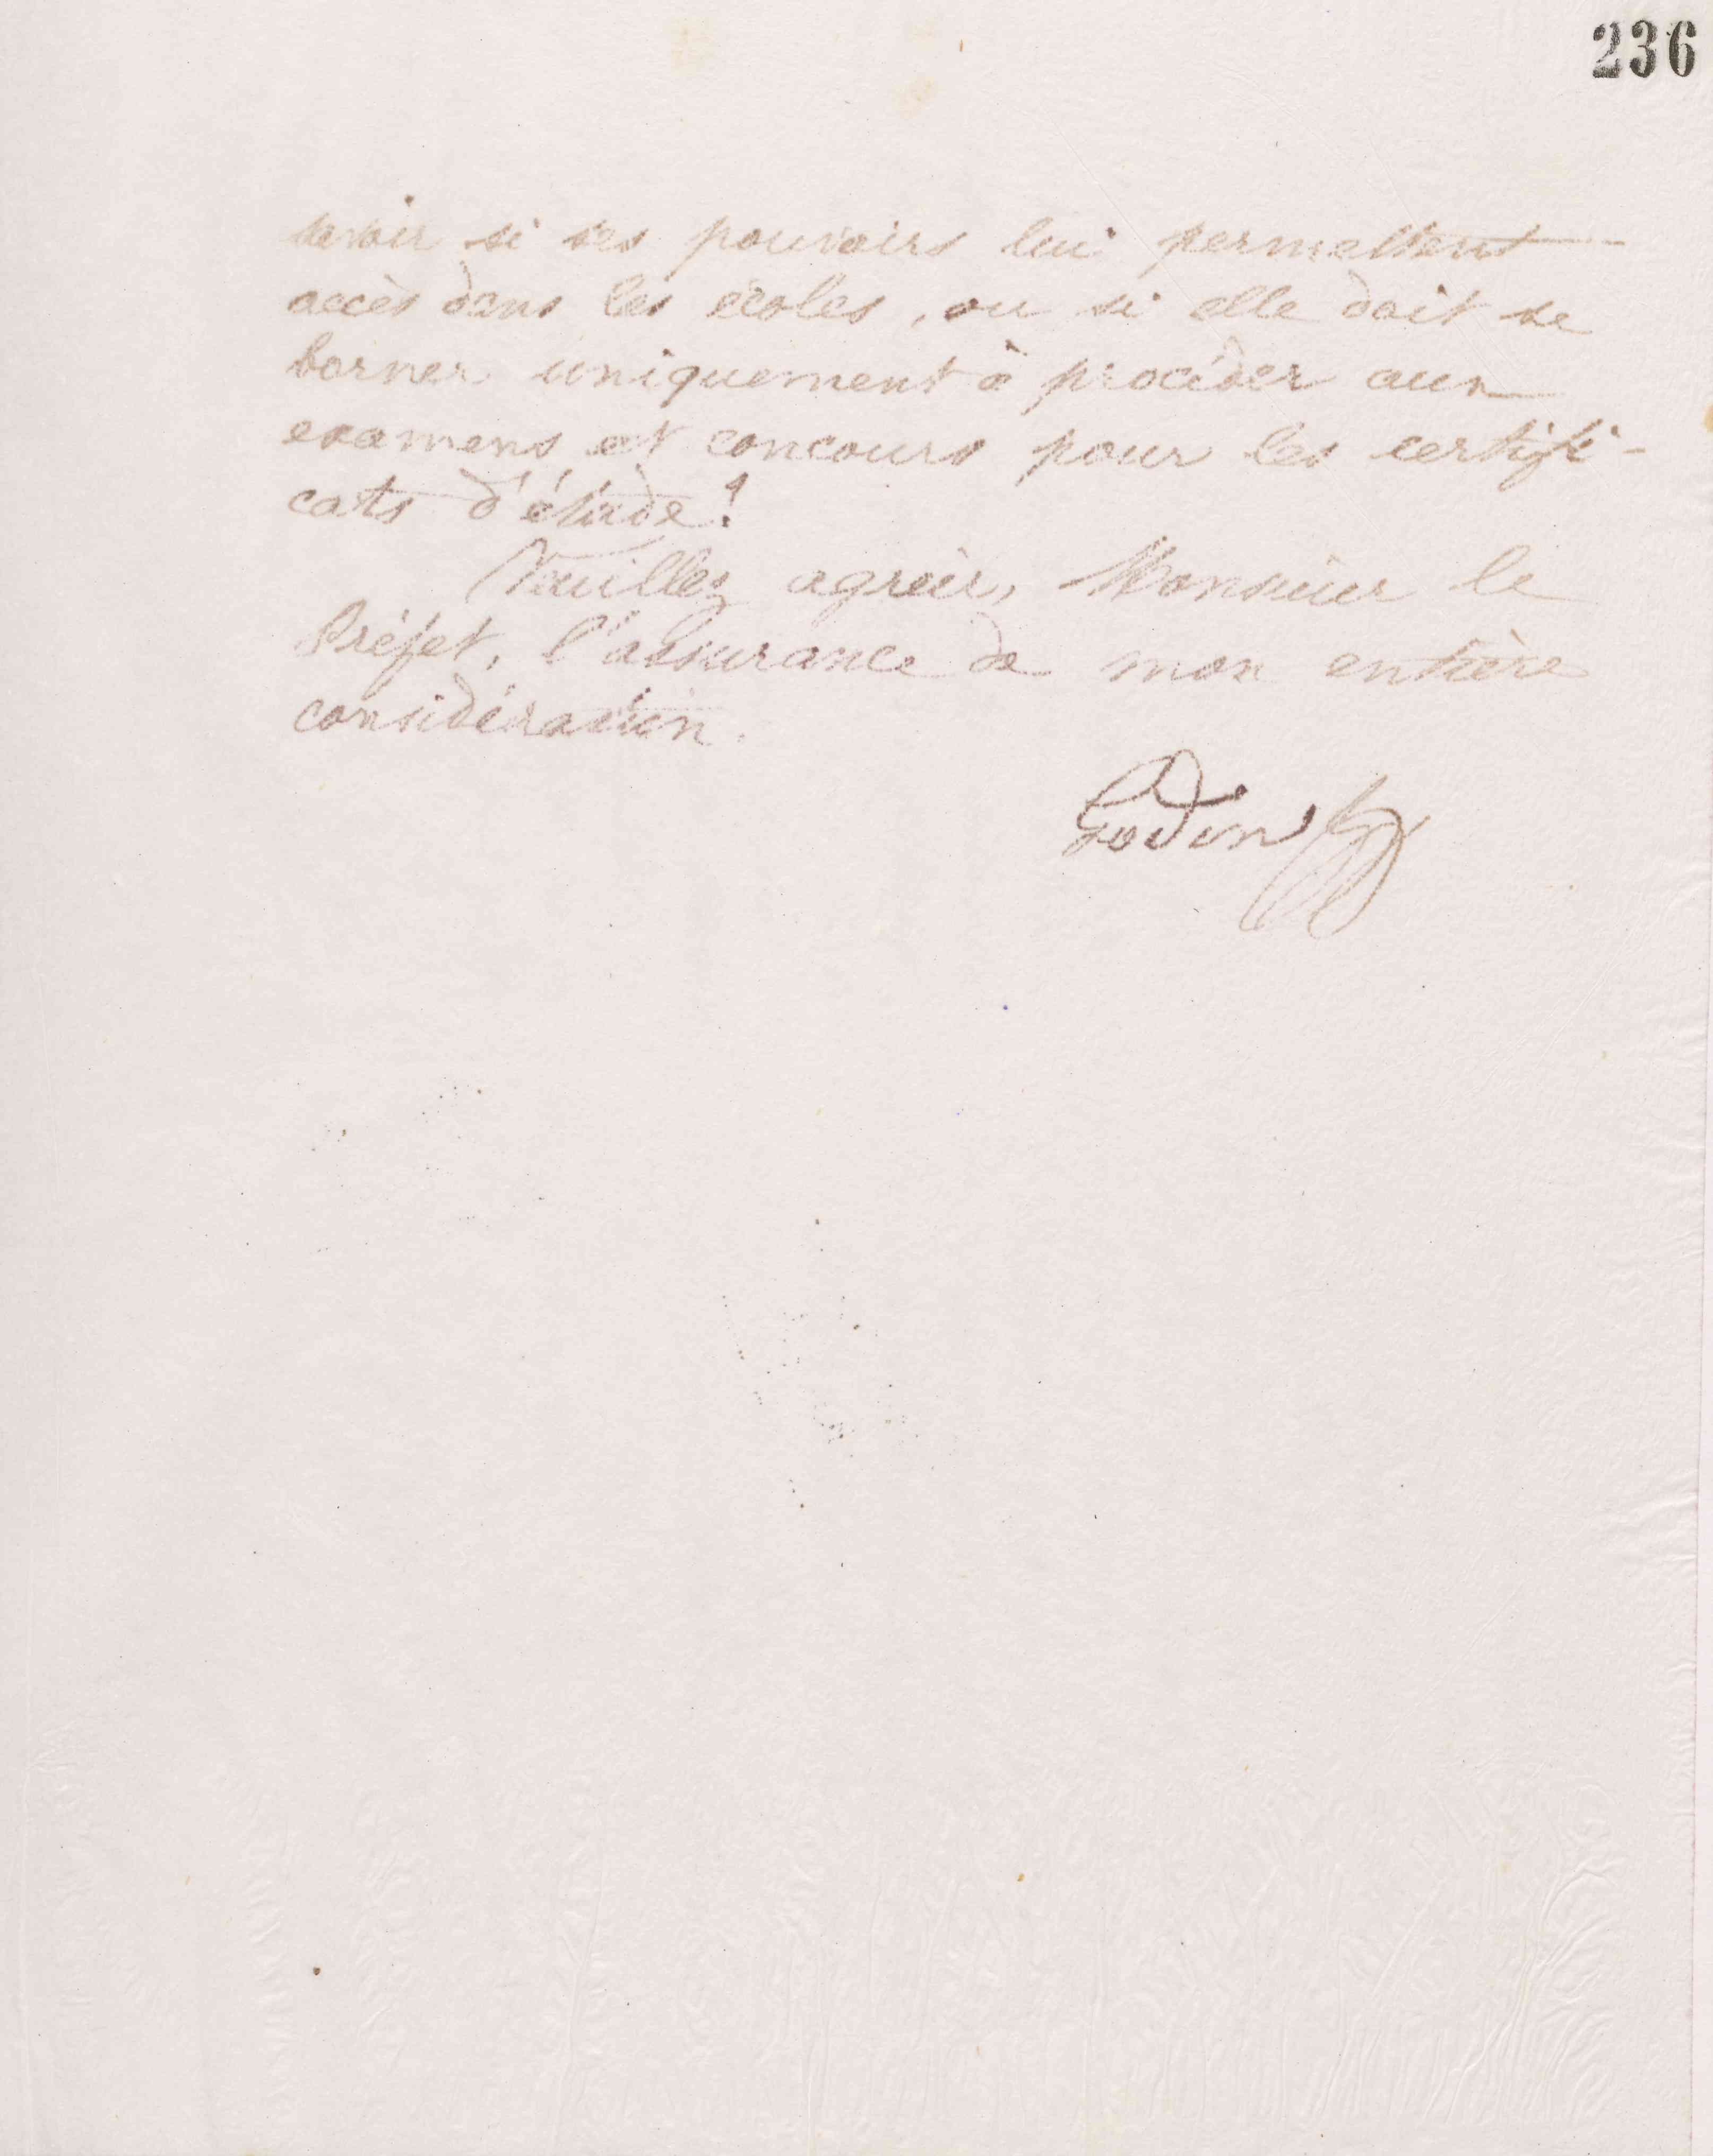 236
savoir si ses pouvoirs lui permettent
accès dans les écoles, ou si elle doit se
borner uniquement à procéder aux
examens et concours pour les certifi-
cats d'étude ?
Veuillez agréer, Monsieur le
Préfet, l'assurance de mon entière
considération.
Godin